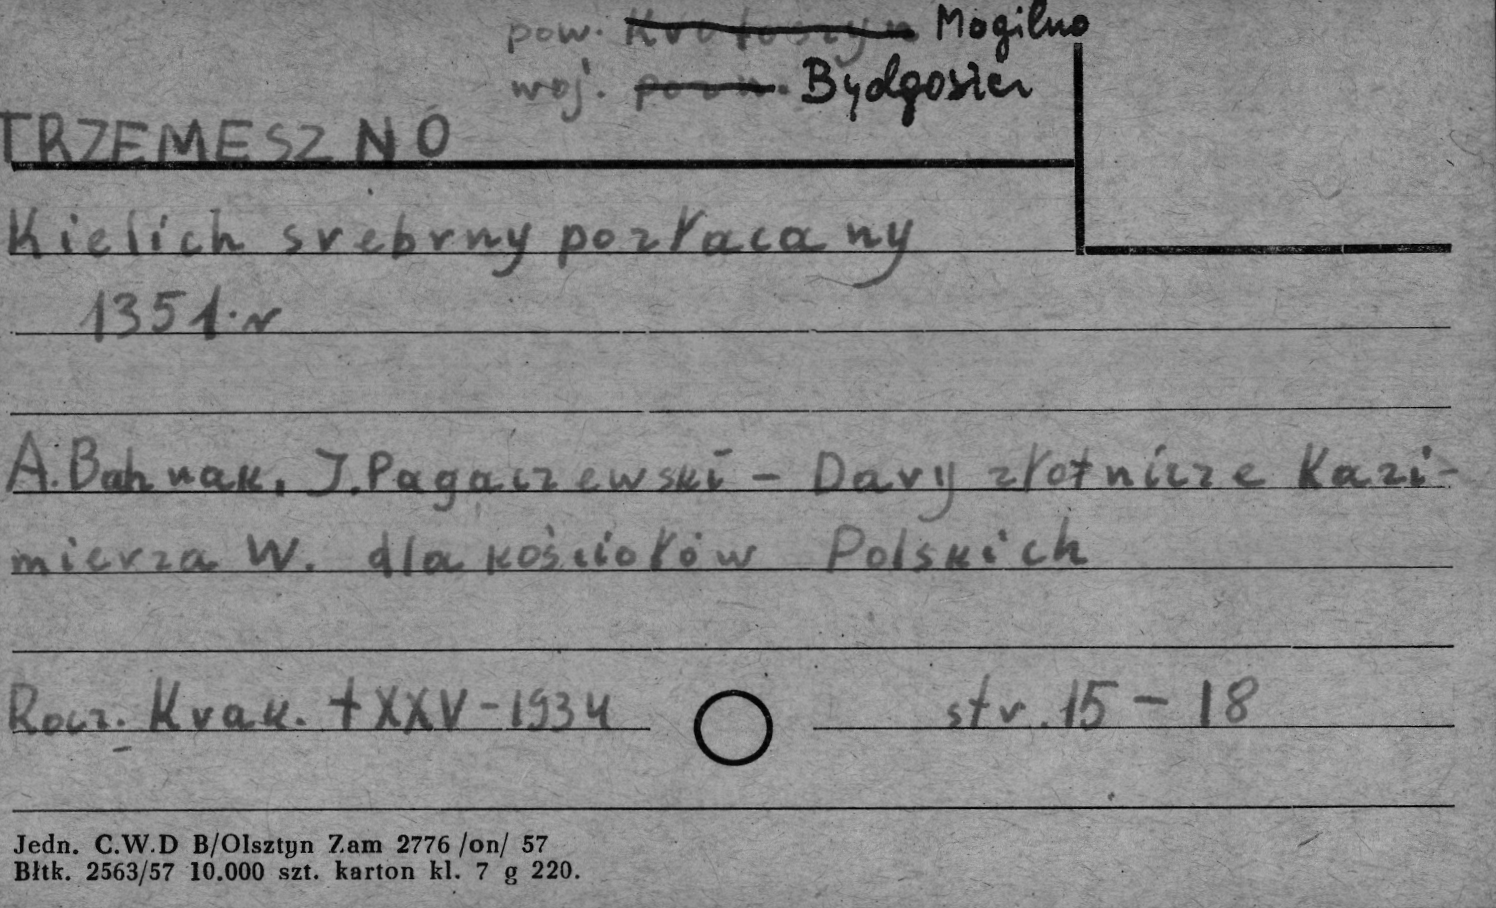 pow. Krotoszyn Mogilno
woj. pozn. Bydgoszcz
TRZEMESZNO
Kielich srebrny pozłacany
1351.r
A. Bohnak, J. Pagaczewski - Dary złotnicze Kazi-
mierza W. dla kościołów Polskich
Rocz. Krak. t XXV - 1934 str. 15 - 18
Jedn. C.W.D B/Olsztyn Zam 2776 /on/ 57
Błtk. 2563/57 10.000 szt. karton kl. 7 g 220.